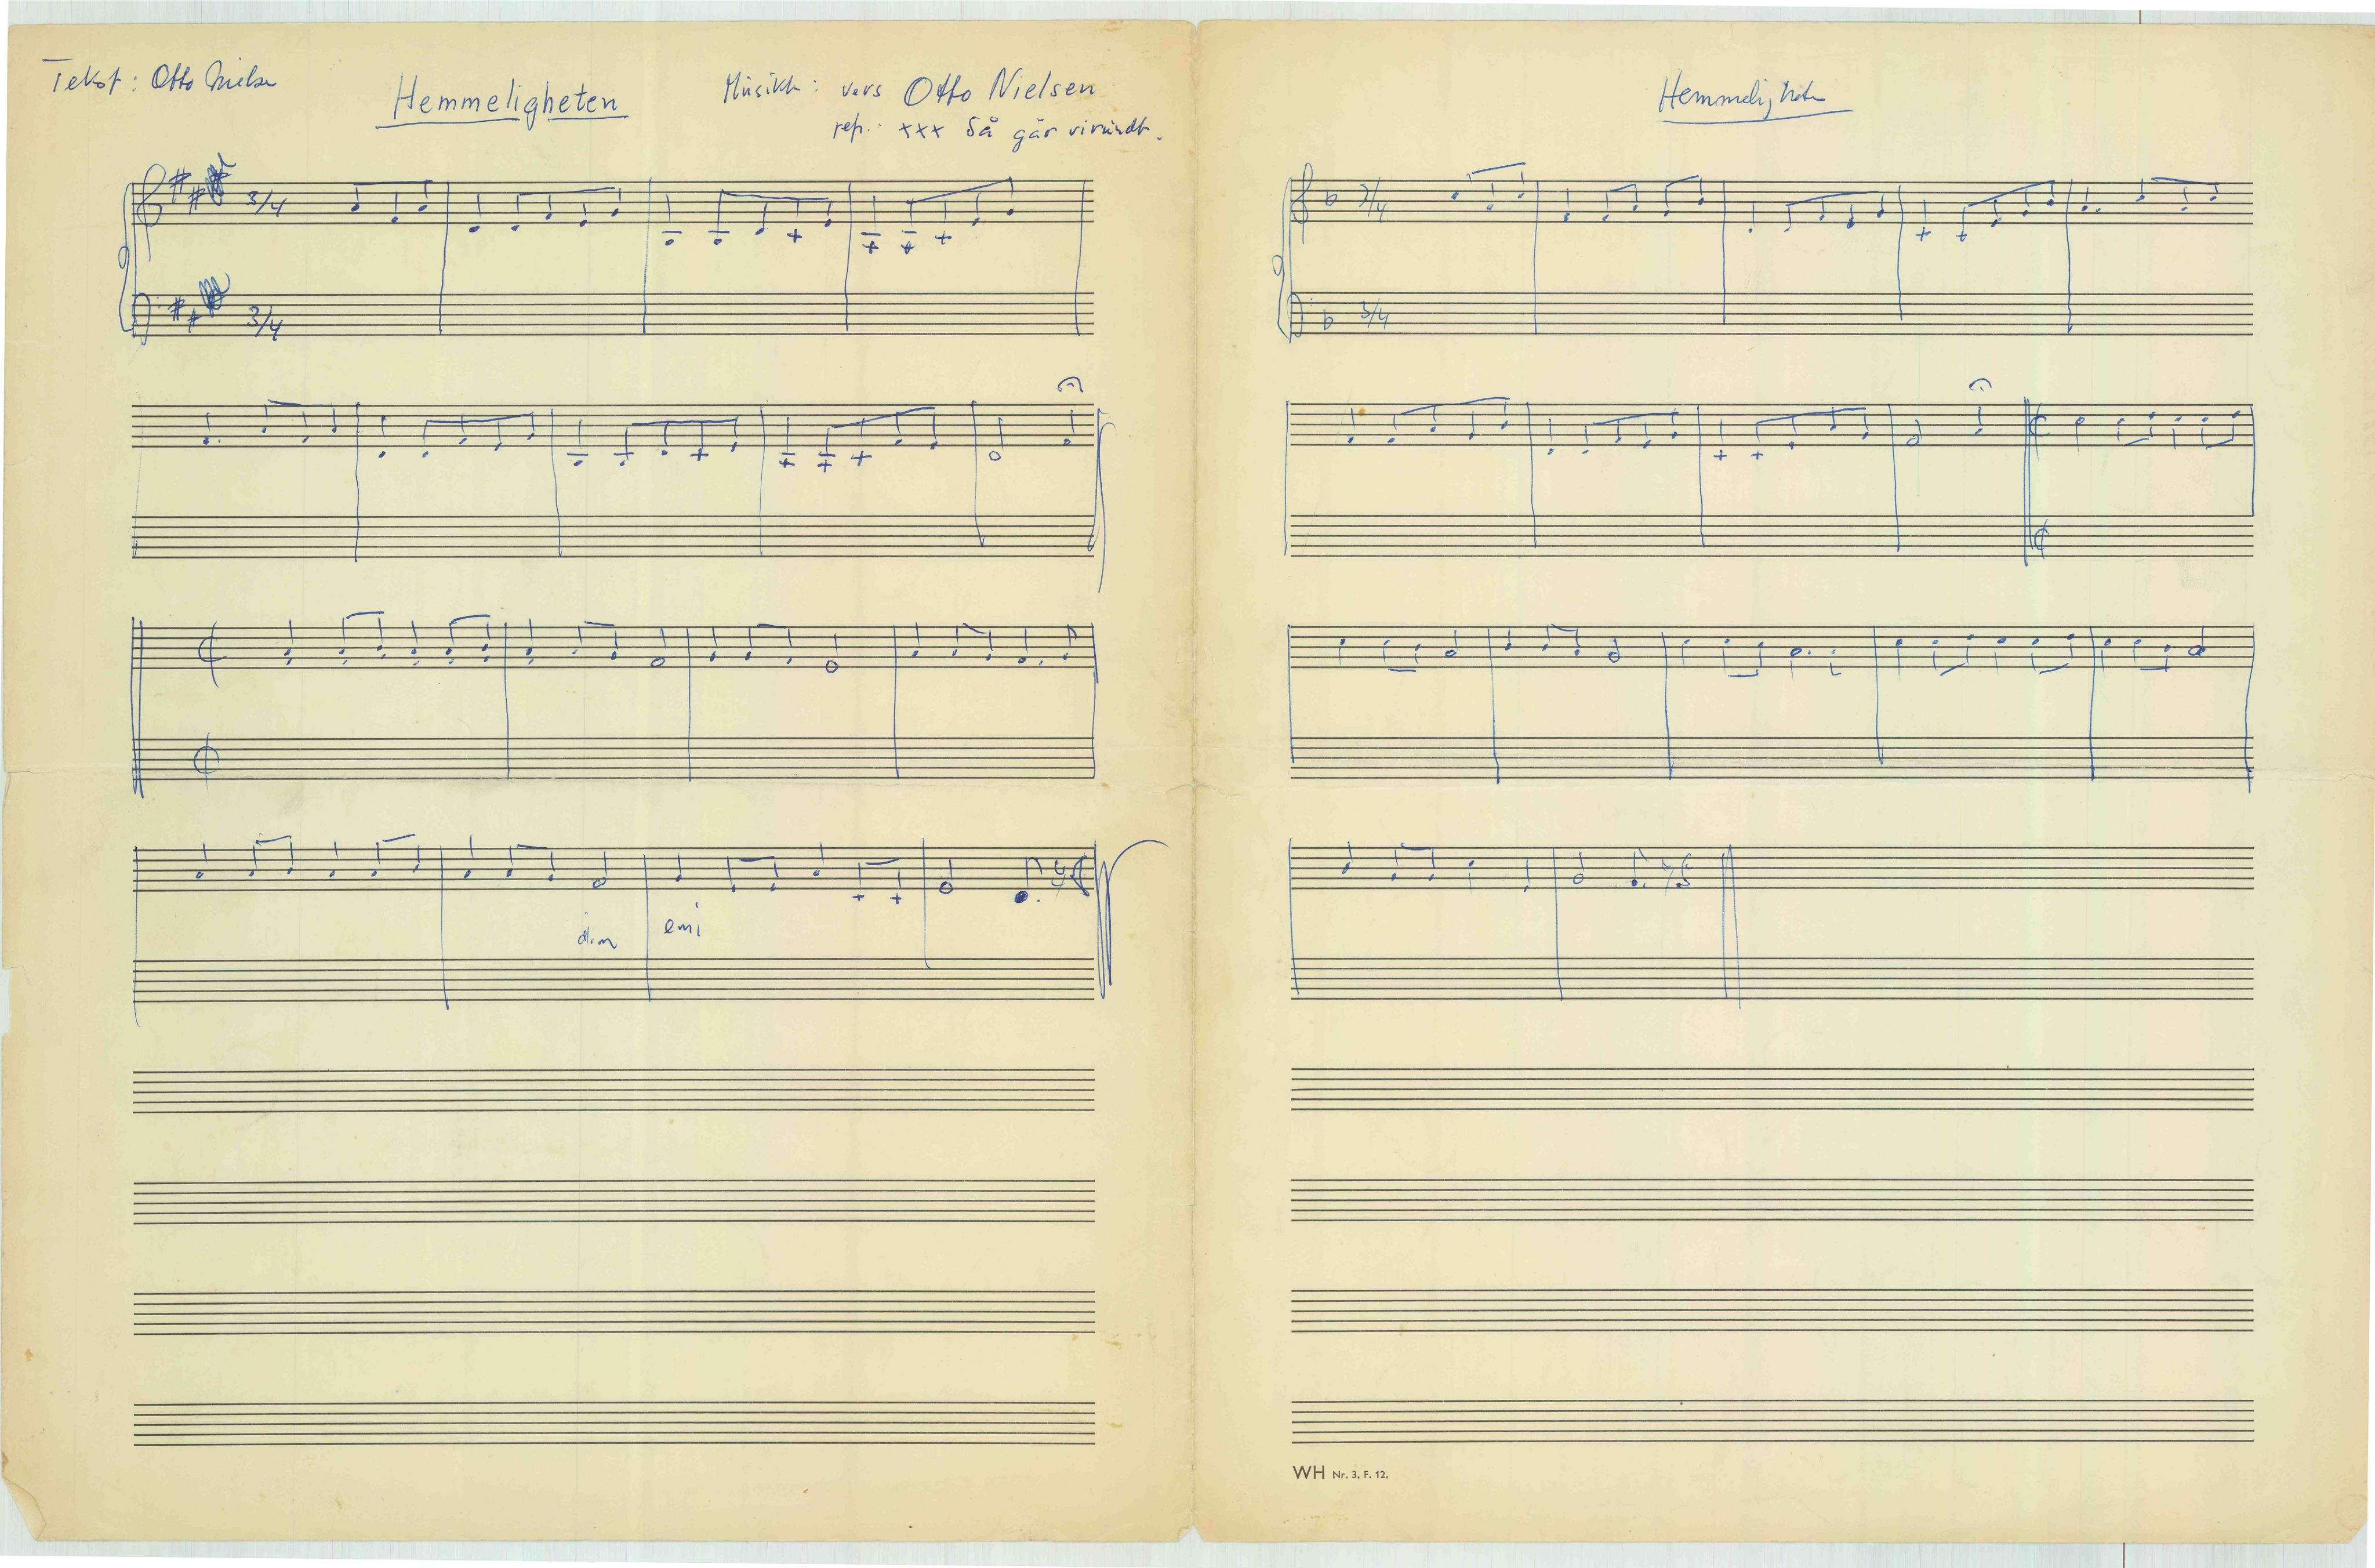 Tekst: Otto Nielsen
Hemmeligheten
Musikk: vers Otto Nielsen
rep.: xxx Så går vi rundt.
3/4
3/4
dim
emi
Hemmeligheten
3/4
3/4
WH Nr. 3. F. 12.